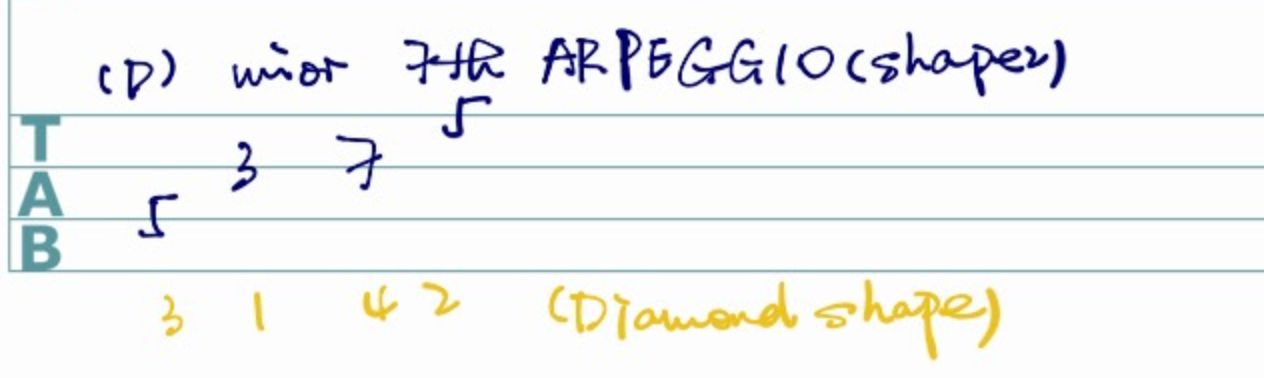 (D) minor 7th ARPEGGIO (shape2)
5
T
3 7
A
5
B
3 1 4 2 (Diamond shape)